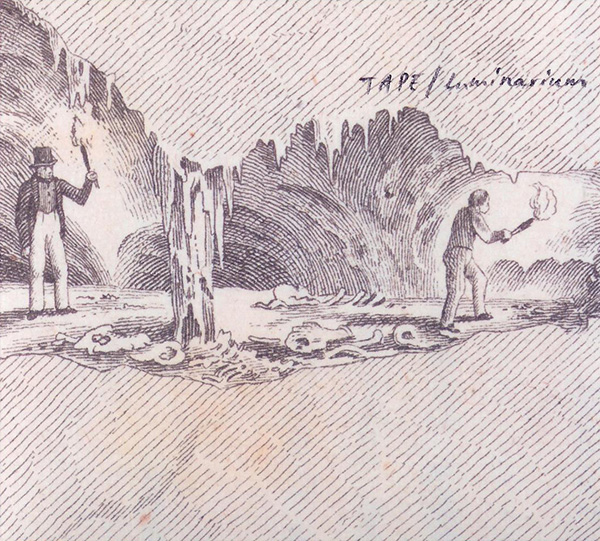 TAPE / Luminarium